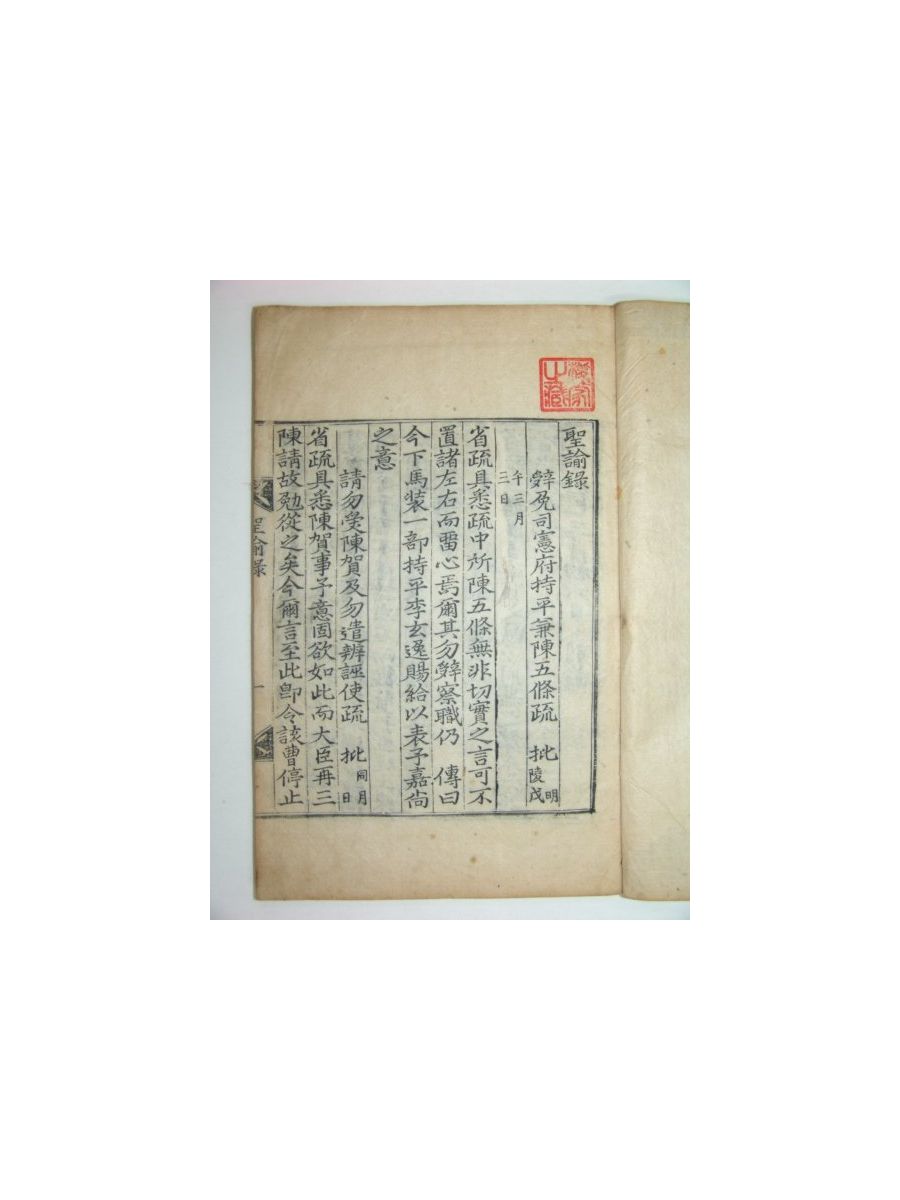 聖諭錄
辤免司憲府持平兼陳五條疏 批 明陵戊
午三月三日
省疏具悉疏中所陳五條無非切實之言可不
置諸左右而畱心焉爾其勿辤察職仍 傳曰
今下馬裝一部持平李玄逸賜給以表予嘉尙
之意
請勿受陳賀及勿遣辨誣使疏 批 同月日
省疏具悉陳賀事予意固欲如此而大臣再三
陳請故勉從之矣今爾言至此卽令該曹停止
聖諭錄
一